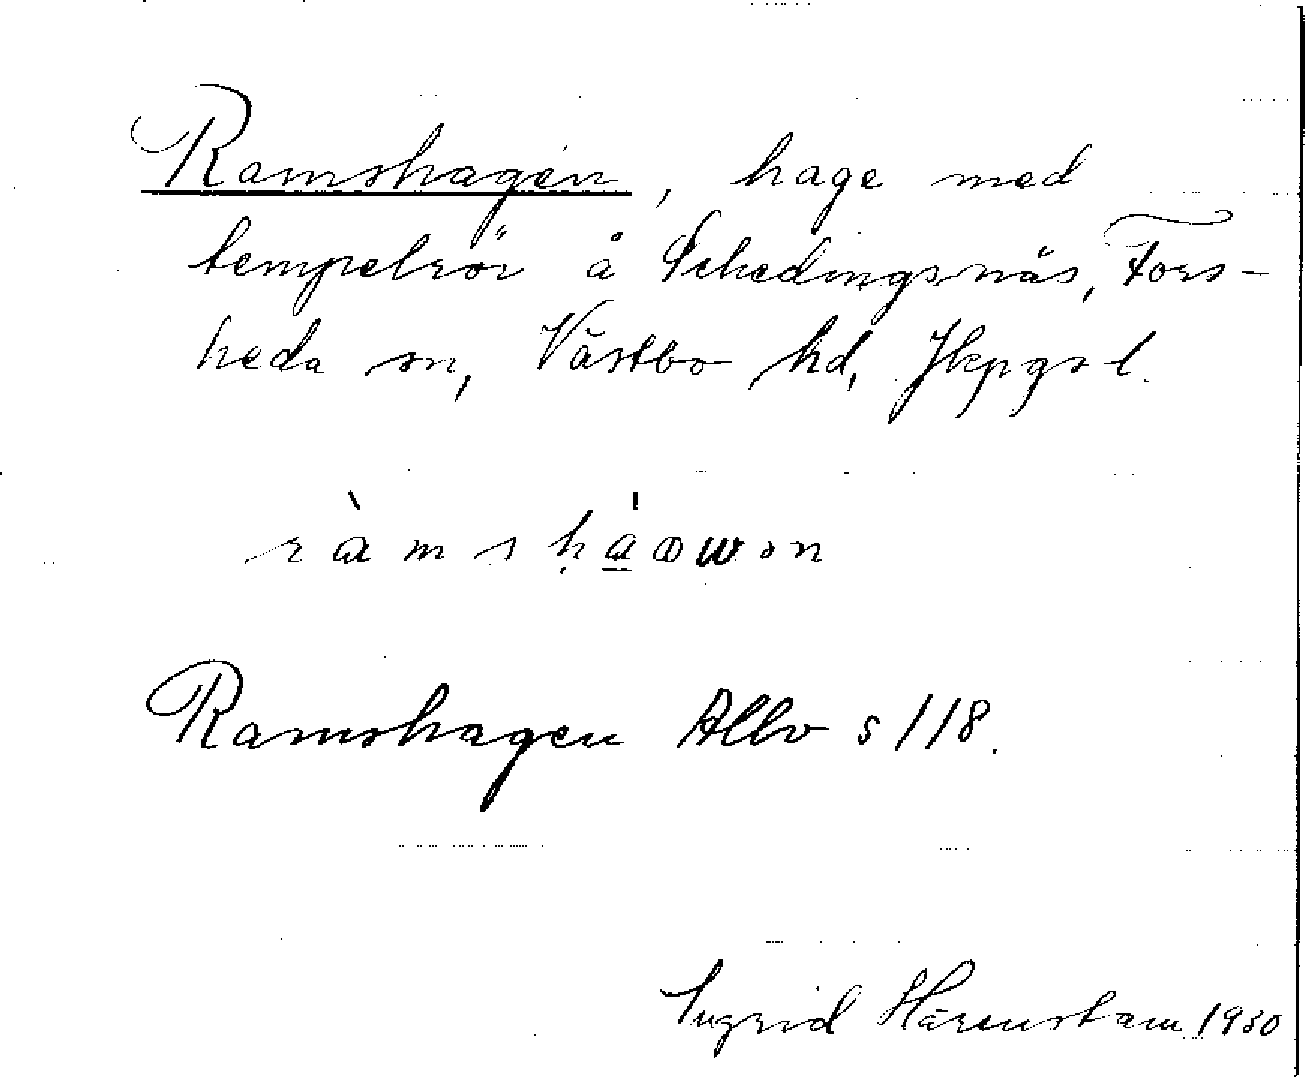 Ramshagen, hage med
tempelrör å Schedingsnäs, Fors-
heda sn, Västbo hd, Jkpgs l.
Ramshagen Allbo s 118.
Ingrid Härenstam 1930